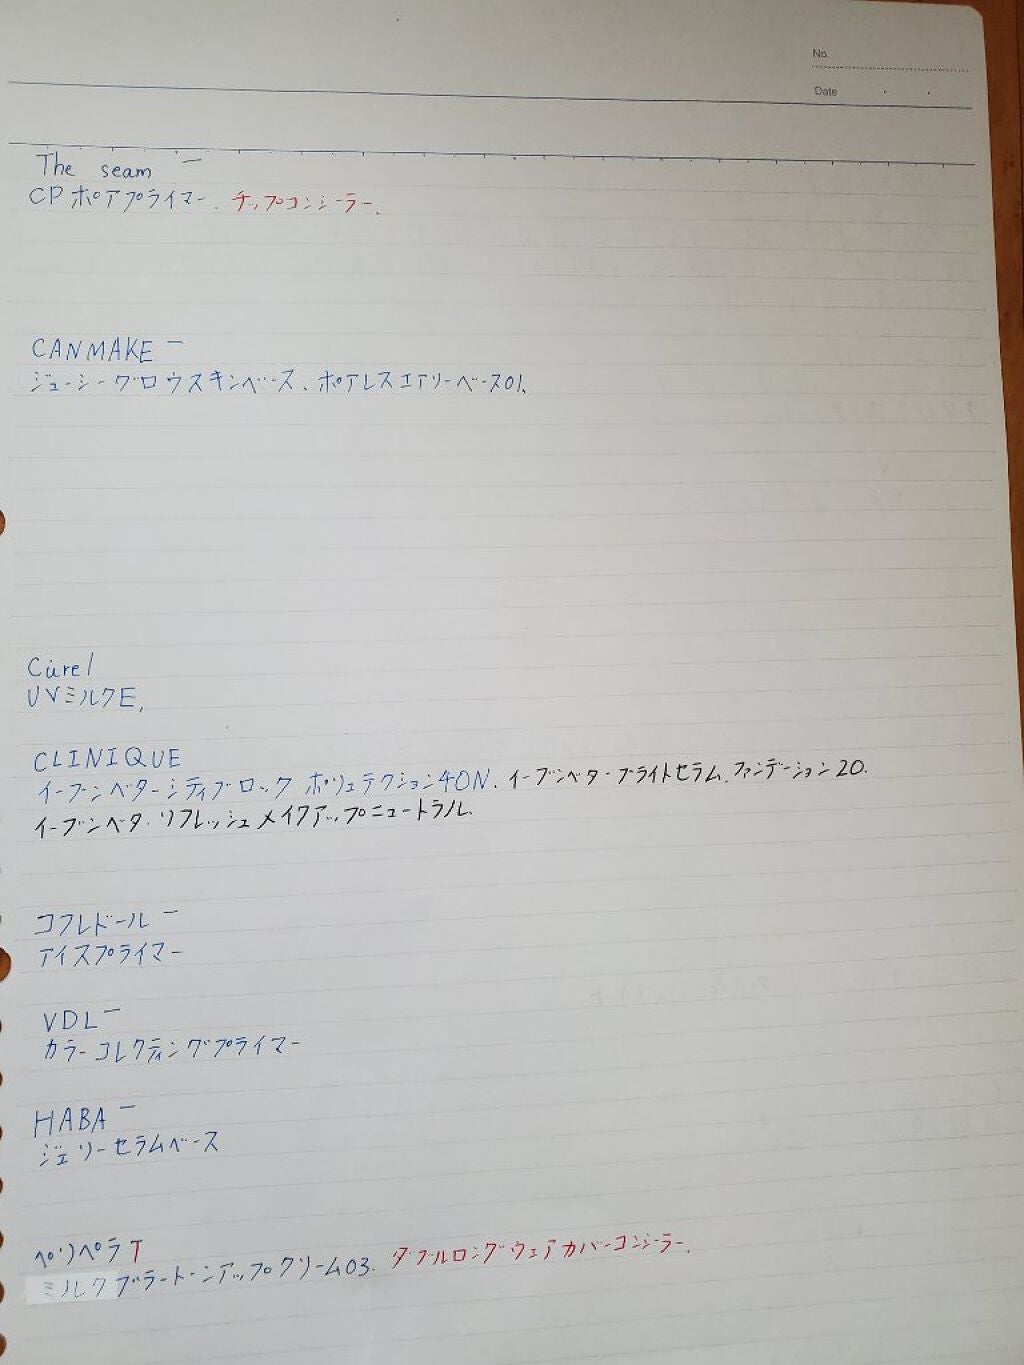 No.
Date . .
The seam ー
CP ポアプライマー、チップコンシーラー、
CANMAKE ー
ジューシーグロウスキンベース、ポアレスエアリーベース01、
Curel
UVミルクE、
CLINIQUE
イーブンベターシティブロック ポリュテクション40N、イーブンベター ブライトセラム、ファンデーション20.
イーブンベター リフレッシュメイクアップニュートラル、
コフレドール ー
アイスプライマー
VDL ー
カラーコレクティングプライマー
HABA ー
ジェリーセラムベース
ペリペラ T
ミルクブラートーンアップクリーム03、ダブルロングウェアカバーコンシーラー、